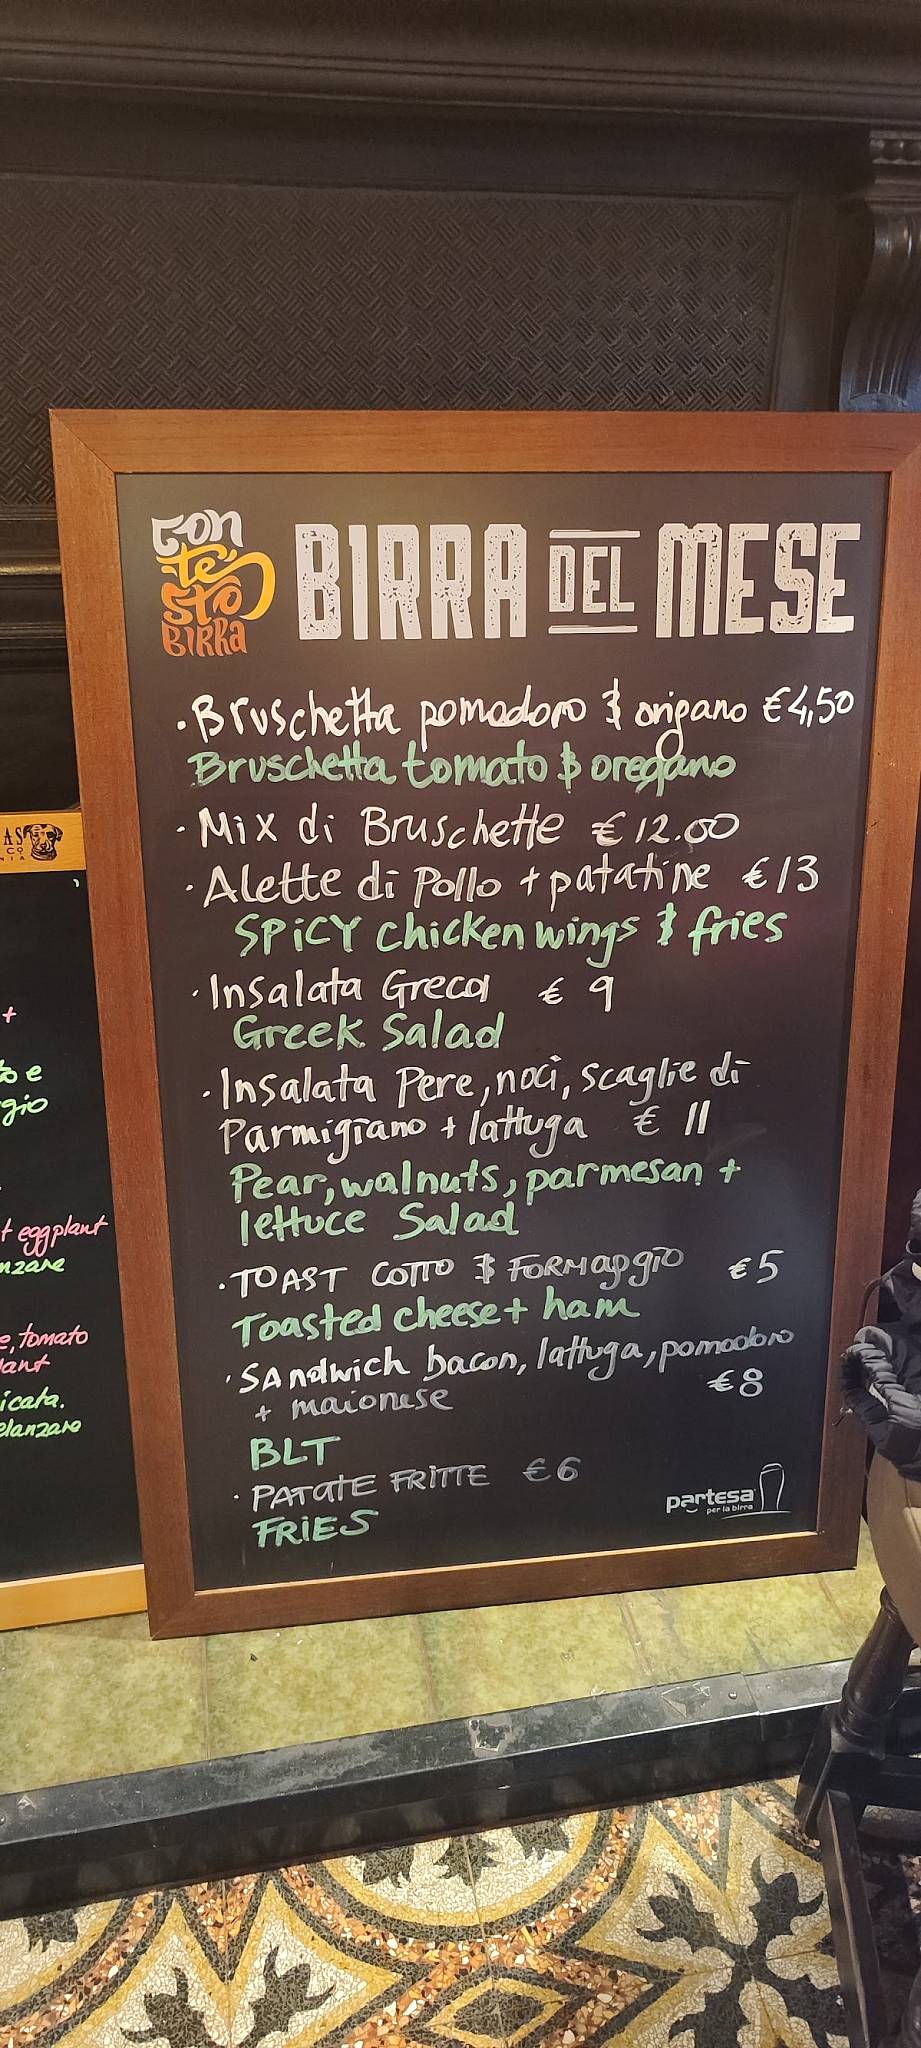 con
te
sto
BIRRa
BIRRA DEL MESE
·Bruschetta pomodoro & origano €4,50
Bruschetta tomato & oregano
·Mix di Bruschette €12.00
·Alette di Pollo + patatine €13
SPiCY chicken wings & fries
·Insalata Greca € 9
Greek Salad
·Insalata Pere, noci, scaglie di
Parmigiano + lattuga € 11
Pear, walnuts, parmesan +
lettuce Salad
·TOAST COTTO & FORMAggio €5
Toasted cheese + ham
·SAndwich bacon, lattuga, pomodoro
+ maionese €8
BLT
·PATATE FRITTE €6
FRIES
partesa
per la birra
AS
CO
NIA
+
to e
gio
t eggplant
nzane
e, tomato
lant
icata.
elanzane